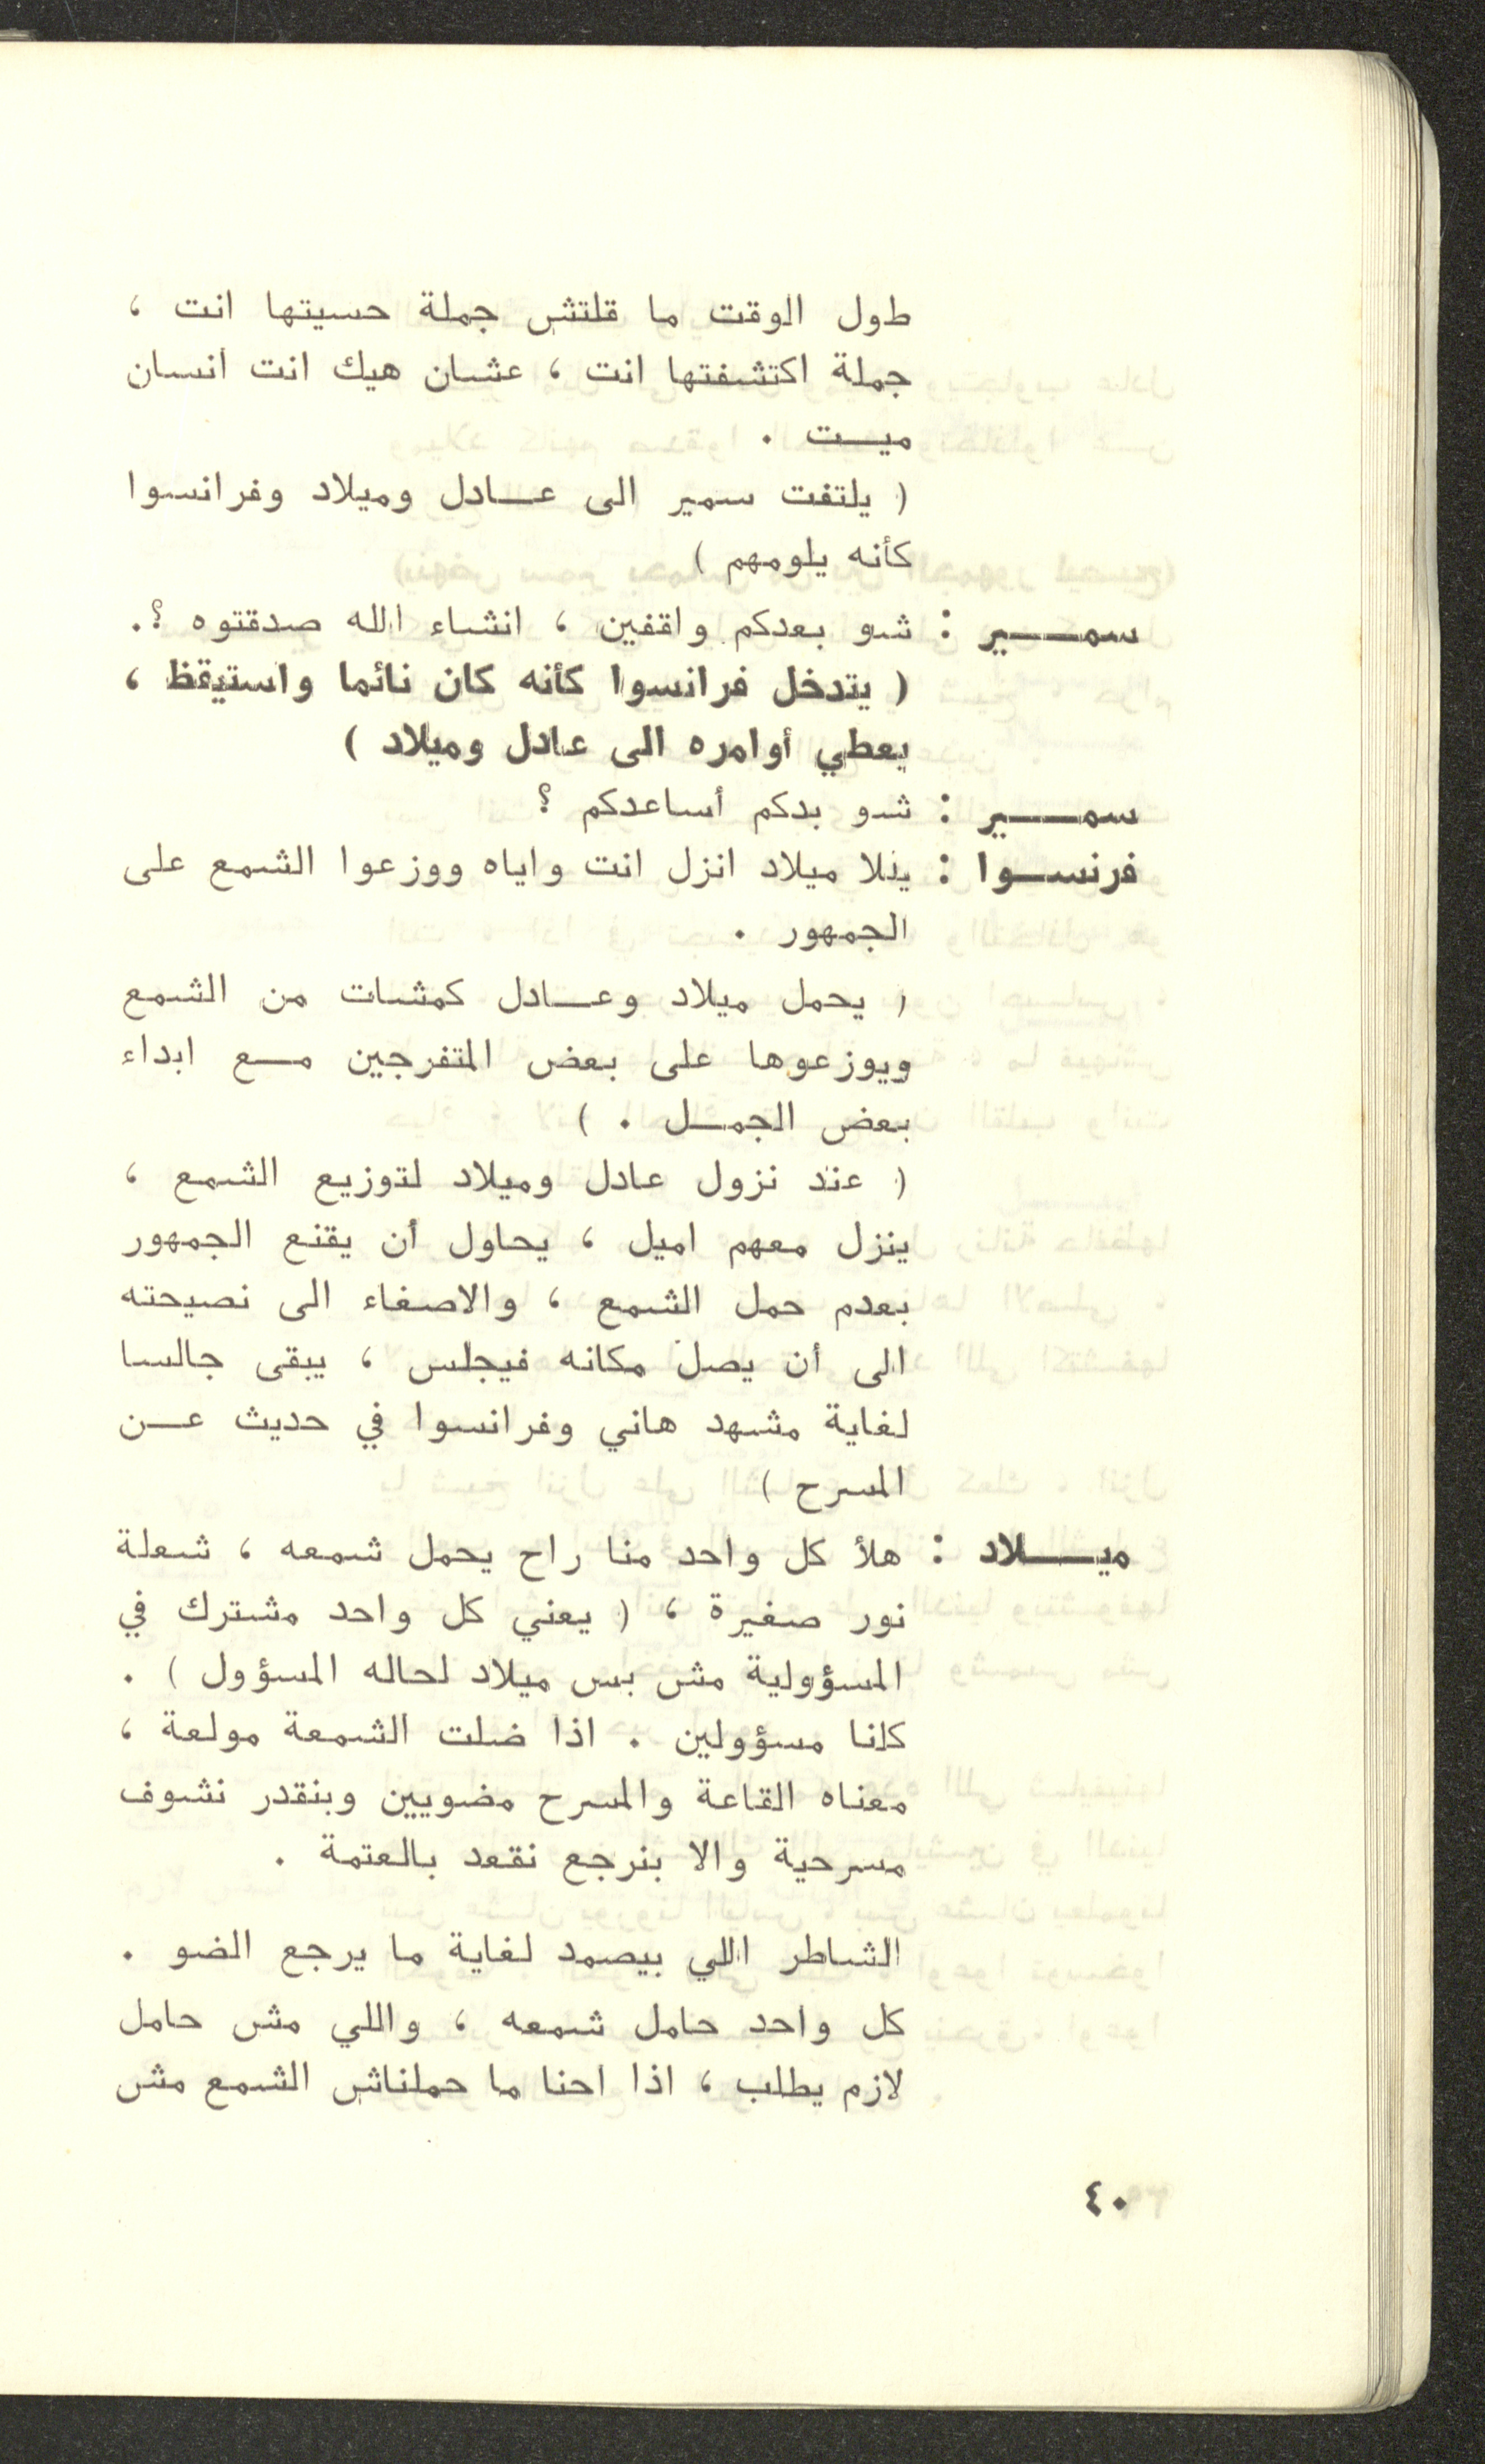 طول الوقت ما قلتش جملة حسيتها انت ،
جملة اكتشفتها انت ، عشان هيك انت انسان
ميـت .
( يلتفت سمير الى عـادل وميلاد وفرانسوا
كأنه يلومهم )
سمـــير : شو بعدكم واقفين ، انشاء الله صدقتوه ؟.
( يتدخل فرانسوا كأنه كان نائما واستيقظ ،
يعطي أوامره الى عادل وميلاد )
سمـــير : شو بدكم أساعدكم ؟
فرنسـوا : يللا ميلاد انزل انت واياه ووزعوا الشمع على
الجمهور .
( يحمل ميلاد وعـادل كمشات من الشمع
ويوزعوها على بعض المتفرجين مـع ابداء
بعض الجمـل . )
( عند نزول عادل وميلاد لتوزيع الشمع ،
ينزل معهم اميل ، يحاول أن يقنع الجمهور
بعدم حمل الشمع ، والاصغاء الى نصيحته
الى أن يصل مكانه فيجلس ، يبقى جالسا
لغاية مشهد هاني وفرانسوا في حديث عـن
المسرح )
ميـــلاد : هلأ كل واحد منا راح يحمل شمعه ، شعلة
نور صغيرة ، ( يعني كل واحد مشترك في
المسؤولية مش بس ميلاد لحاله المسؤول ) .
كلنا مسؤولين . اذا ضلت الشمعة مولعة ،
معناه القاعة والمسرح مضويين وبنقدر نشوف
مسرحية والا بنرجع نقعد بالعتمة .
الشاطر اللي بيصمد لغاية ما يرجع الضو .
كل واحد حامل شمعه ، واللي مش حامل
لازم يطلب ، اذا احنا ما حملناش الشمع مش
٤٠